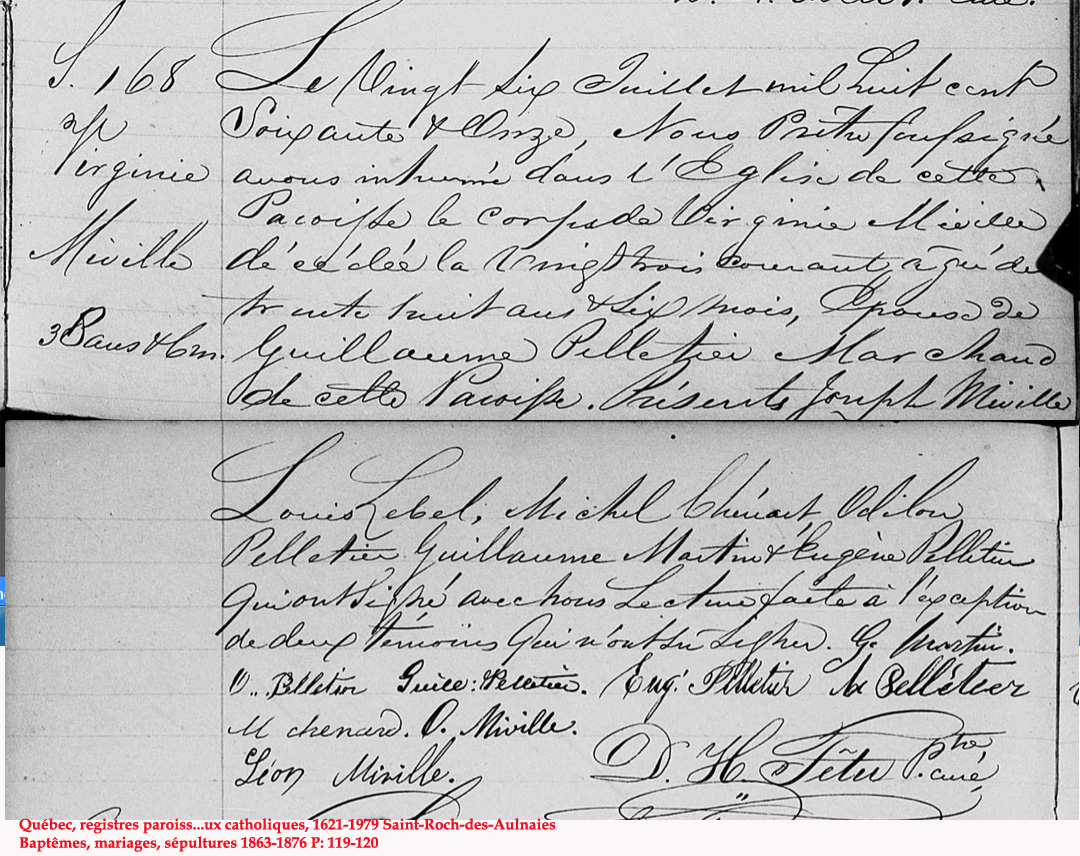 S. 168
Virginie
Miville
38 ans & 6 m.
Le Vingt six Juillet mil huit cent
Soixante & Onze, Nous Prêtre soussigné
avons inhumé dans l'Eglise de cette
Paroisse le corps de Virginie Miville
décédée la Vingt trois courant, âgée de
trente huit ans & six mois, Epouse de
Guillaume Pelletier Marchand
de cette Paroisse. Présents Joseph Miville
Louis Lebel, Michel Chénard, Odilon
Pelletier Guillaume Martin & Eugène Pelletier
Qui ont Signé avec nous Lecture faite à l'exception
de deux Témoins Qui n'ont su signer. G. Martin.
O. Pelletier Guill: Pelletier. Eug. Pelletier Pellétier
M chenard. O. Miville.
Léon Miville. D. H. Têtu Ptre, curé
Québec, registres paroiss...ux catholiques, 1621-1979 Saint-Roch-des-Aulnaies
Baptêmes, mariages, sépultures 1863-1876 P: 119-120